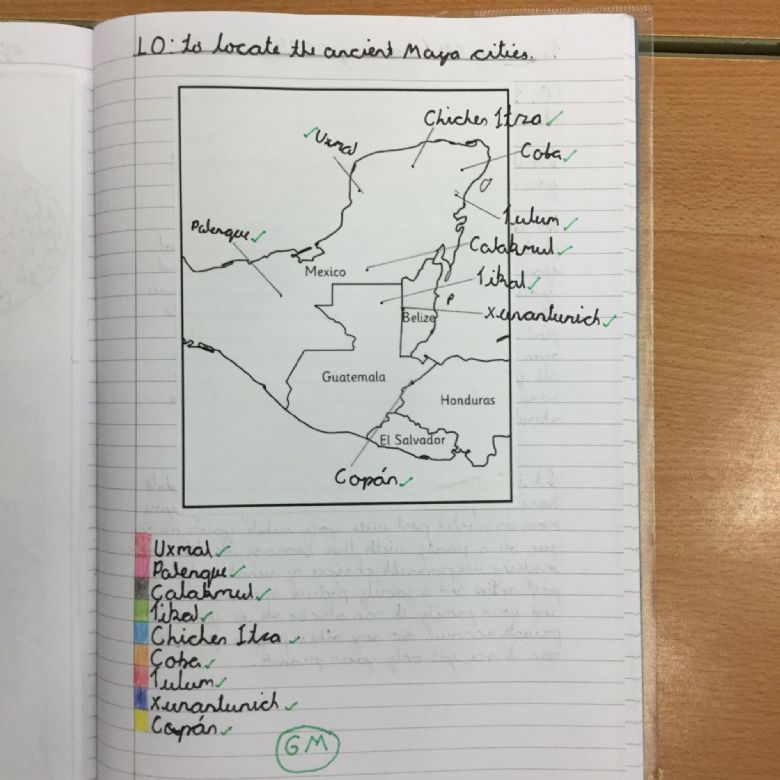 LO: to locate the ancient Maya cities.
Chichen Itza
Uxmal
Coba
Tulum
Palenque
Calakmul
Mexico
Tikal
Belize
Xunantunich
Guatemala
Honduras
El Salvador
Copán
Uxmal
Palenque
Calakmul
Tikal
Chichen Itza
Coba
Tulum
Xunantunich
Copán
GM